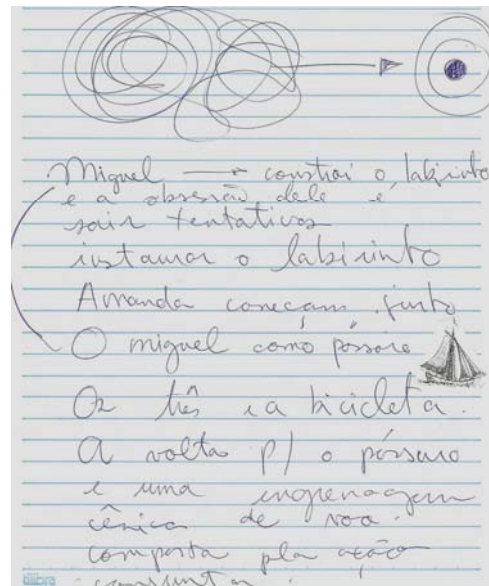 Miguel → constrói o labirinto
e a obsessão dele é
sair tentativas
instaurar o labirinto
Amanda começam junto
O miguel como pássaro
Os três e a bicicleta.
A volta p/ o pássaro
é uma engrenagem
cênica de voo.
composta pla ação
conjunta.